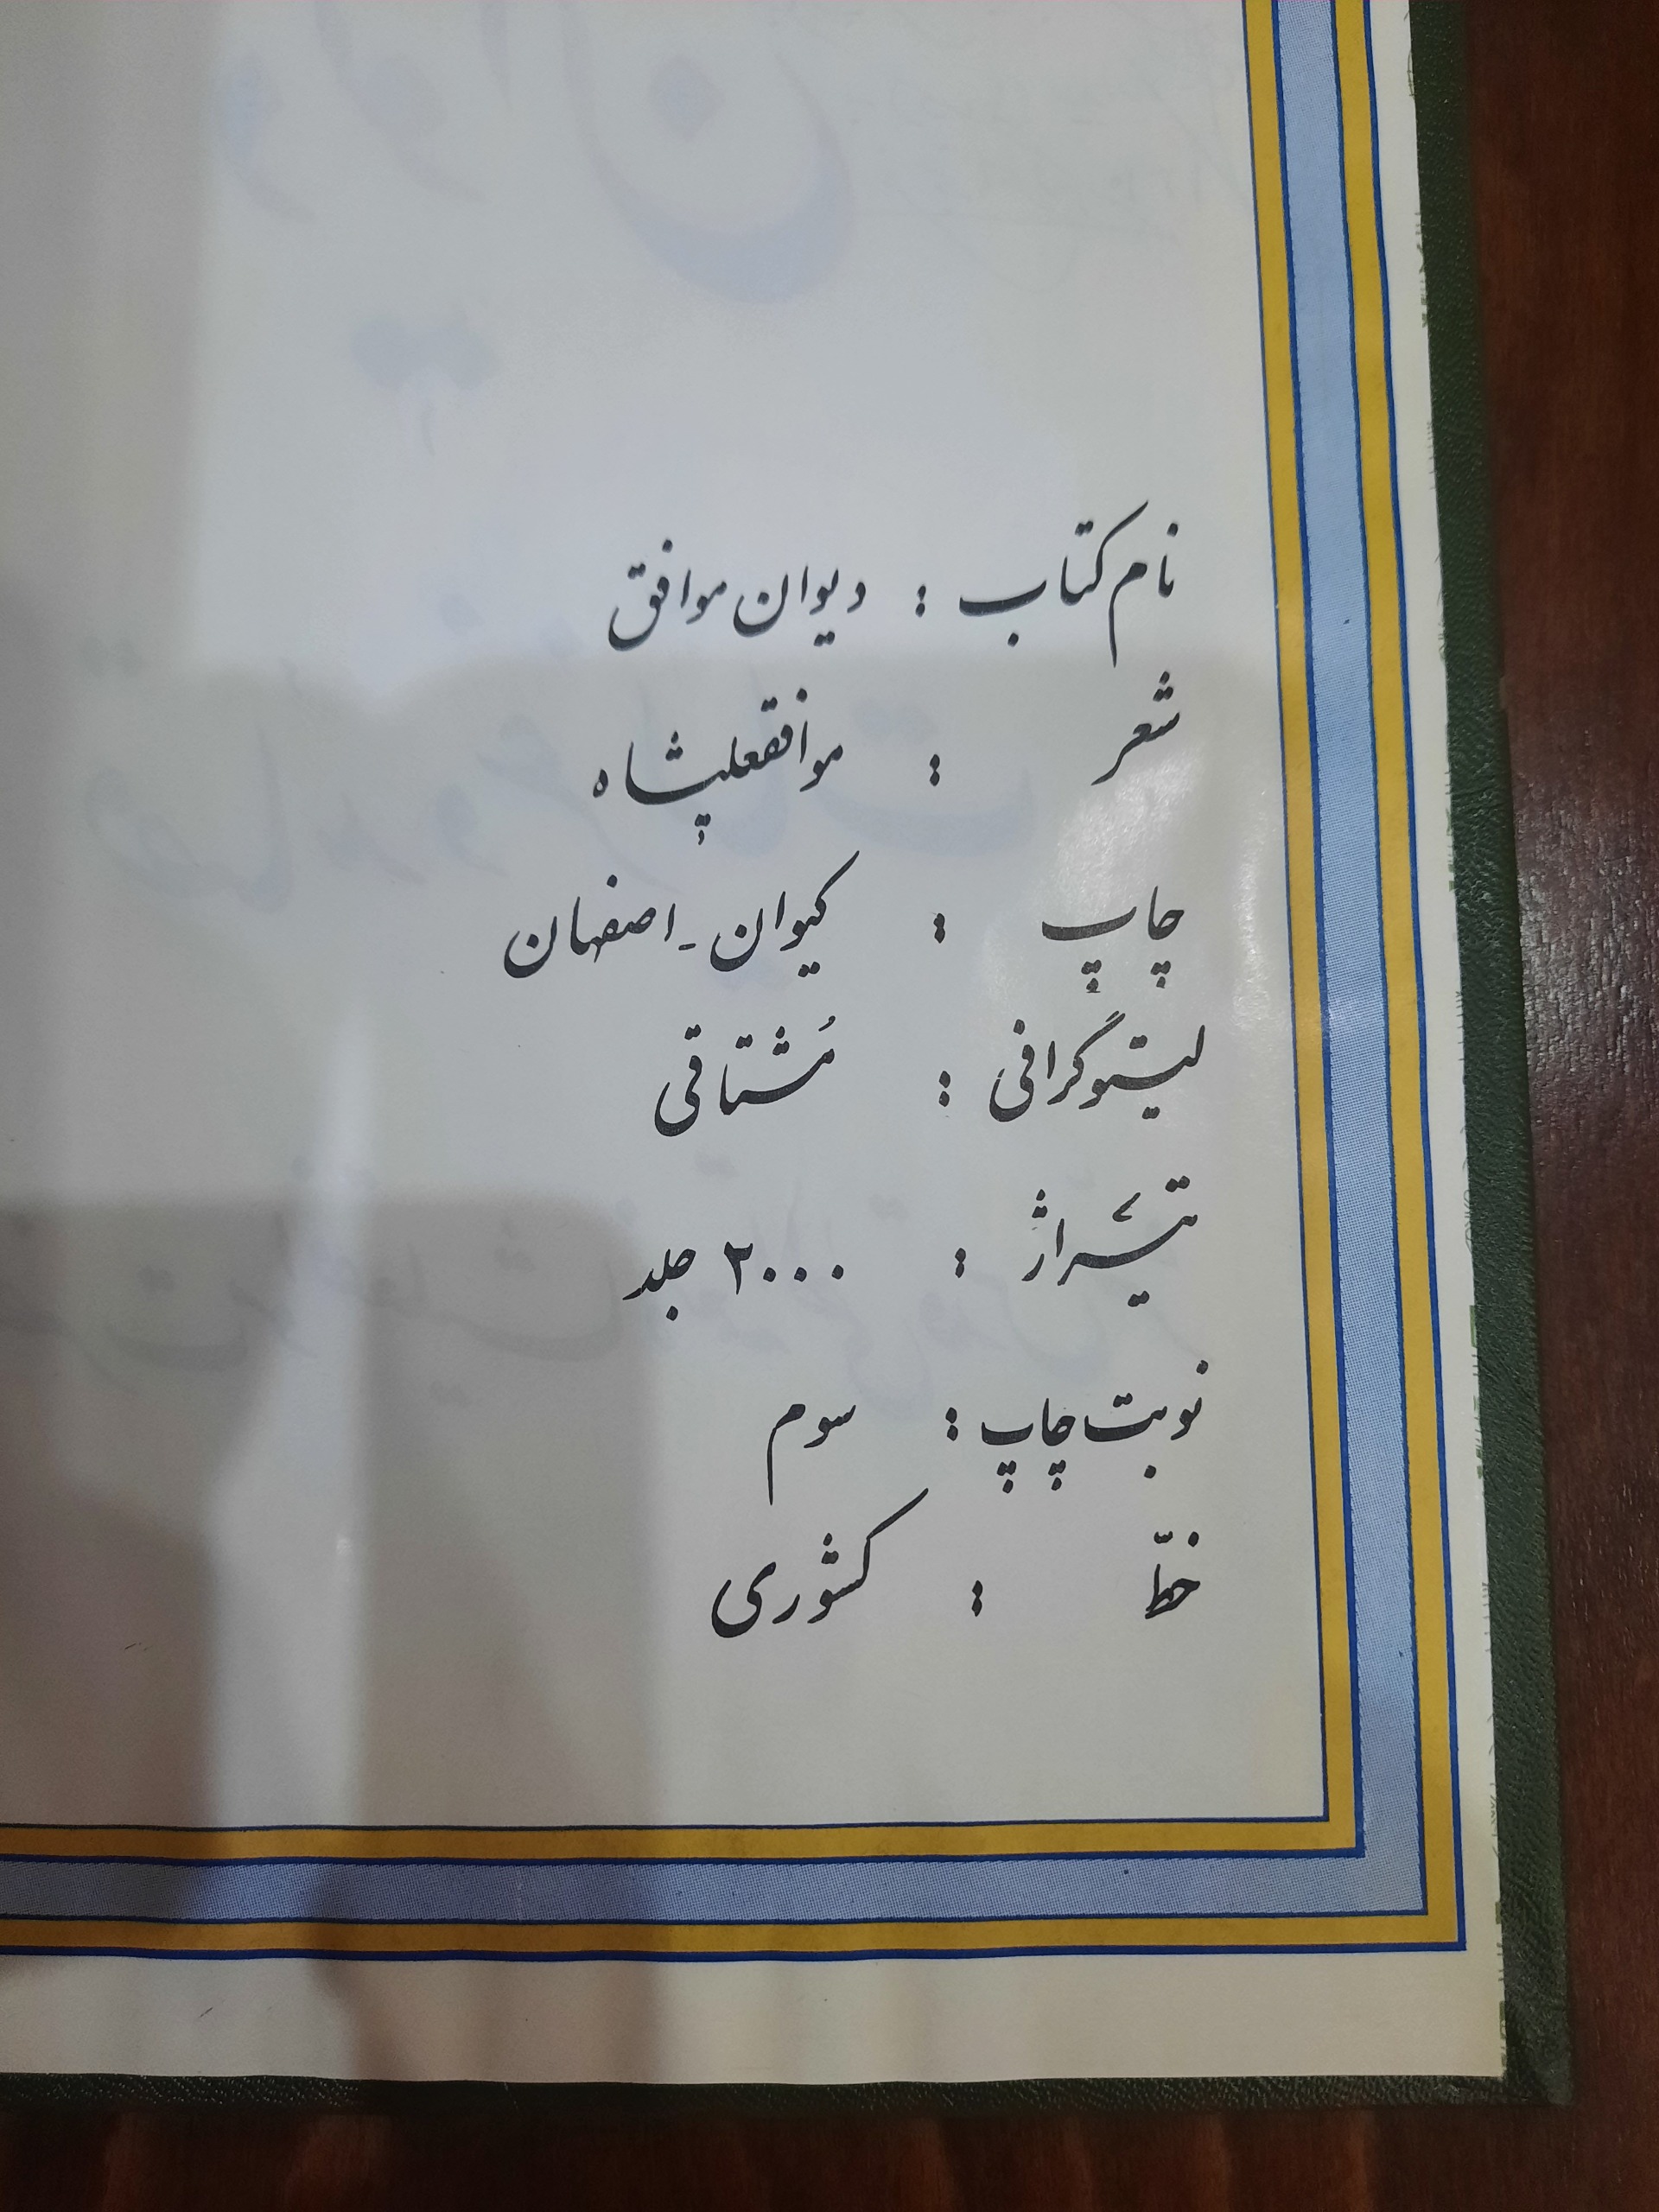 نام کتاب : دیوان موافق
شعر : موافقعلیشاه
چاپ : کیوان - اصفهان
لیتوگرافی : مُشتاقی
تیراژ : ۲۰۰۰ جلد
نوبت چاپ : سوم
خطّ : کشوری